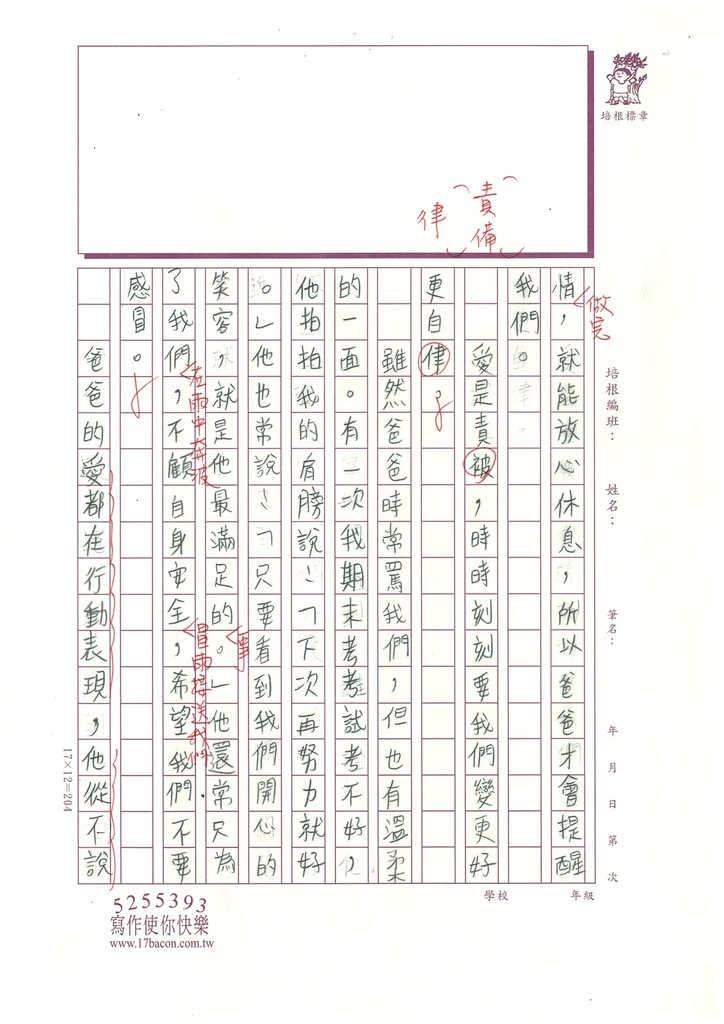 培根標章
責備
律
做完
情，就能放心休息，所以爸爸才會提醒
我們。
愛是責被，時時刻刻要我們變更好
更自律。
雖然爸爸時常罵我們，但也有溫柔
的一面。有一次我期末考考試考不好，
他拍拍我的肩膀說：「下次再努力就好
。」他也常說：「只要看到我們開心的
笑容，就是他最滿足的。」他還常只為
事
了我們，不顧自身安全，希望我們不要
在雨中奔波
冒雨接送我們
感冒。
爸爸的愛都在行動表現，他從不說
培根編班：
姓名：
筆名：
年 月 日 第 次
學校
年級
17×12=204
5255393
寫作使你快樂
www.17bacon.com.tw